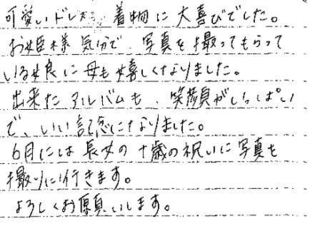 可愛いドレス、着物に大喜びでした。
お姫様気分で、写真を撮ってもらって
いる娘に母も嬉しくなりました。
出来たアルバムも、笑顔がいっぱい
で、いい記念になりました。
6月には長女の十歳の祝いに写真を
撮りに行きます。
よろしくお願いします。